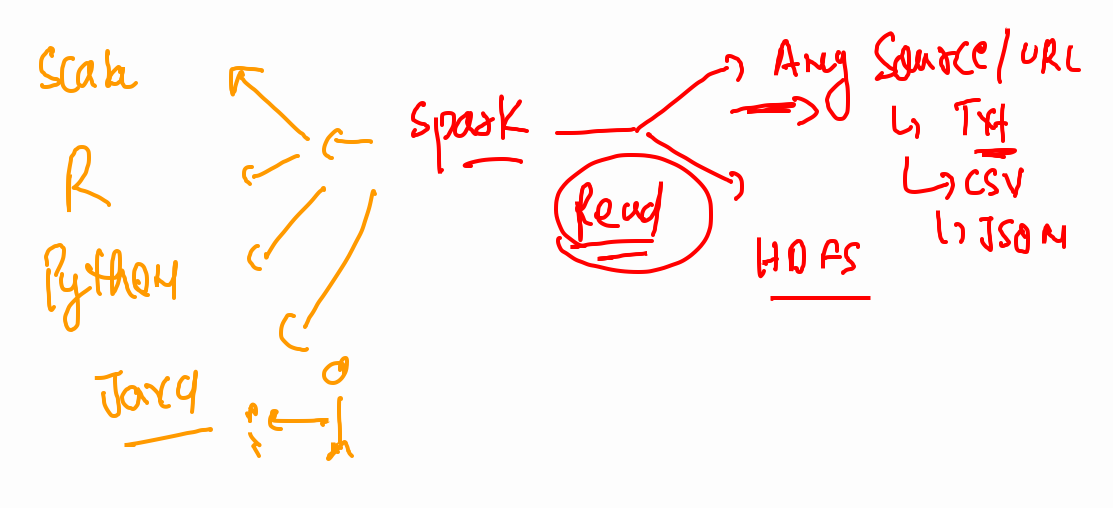 Scala
R
Python
Java
Spark
Read
Any Source/URL
Txt
CSV
JSON
HDFS